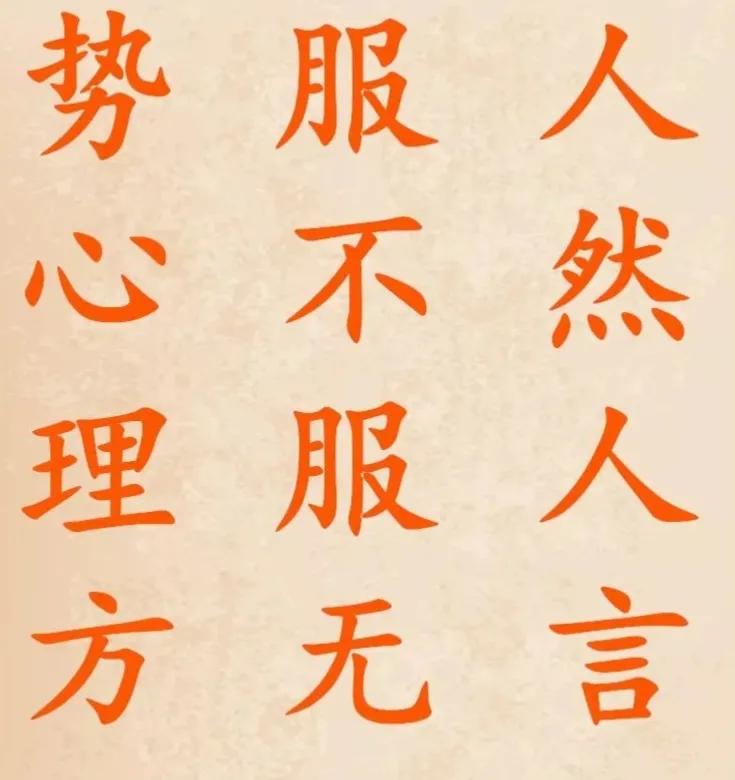 势服人
心不然
理服人
方无言